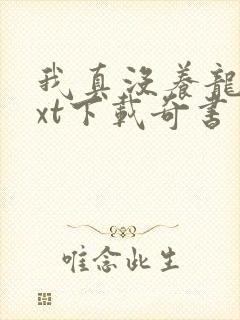 我真没养龍
xt下載奇書
唯念此生